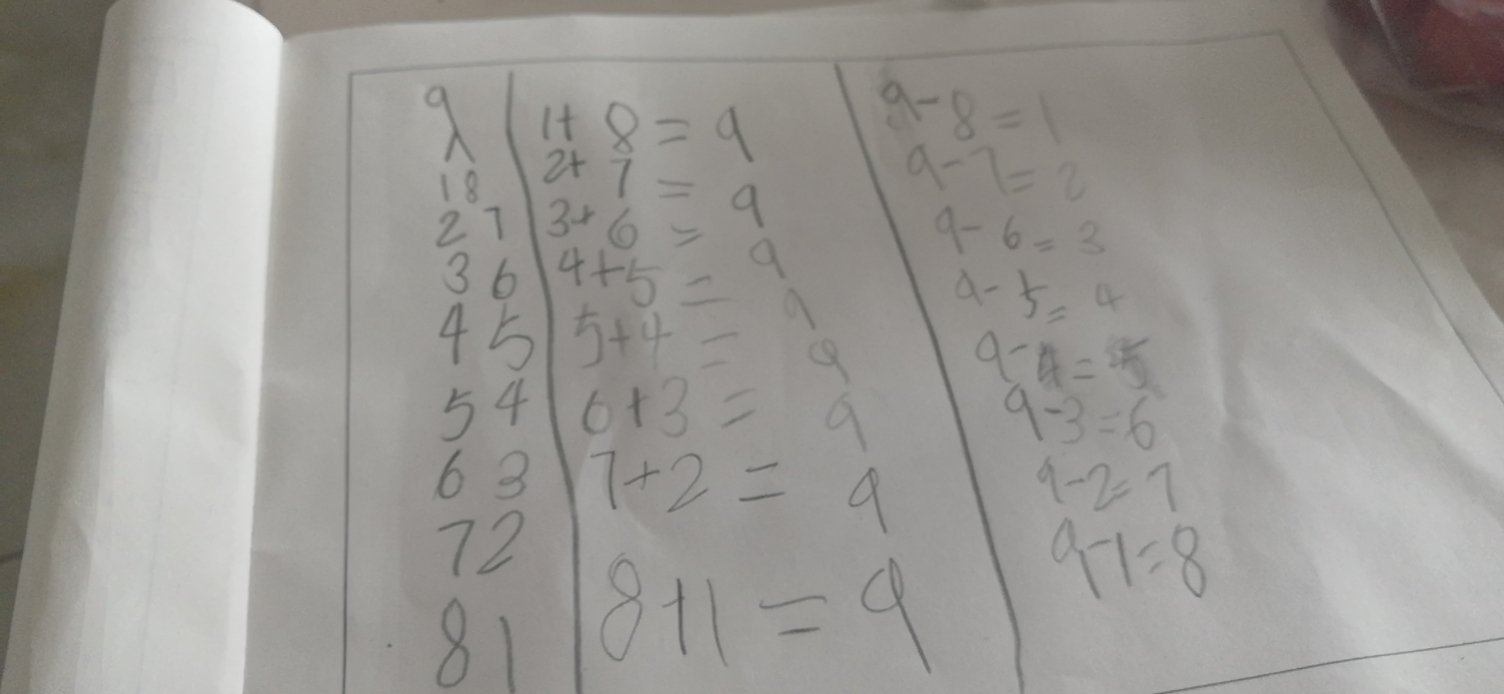 9
1 8
2 7
3 6
4 5
5 4
6 3
7 2
8 1
1+8=9
2+7=9
3+6=9
4+5=9
5+4=9
6+3=9
7+2=9
8+1=9
9-8=1
9-7=2
9-6=3
9-5=4
9-4=5
9-3=6
9-2=7
9-1=8